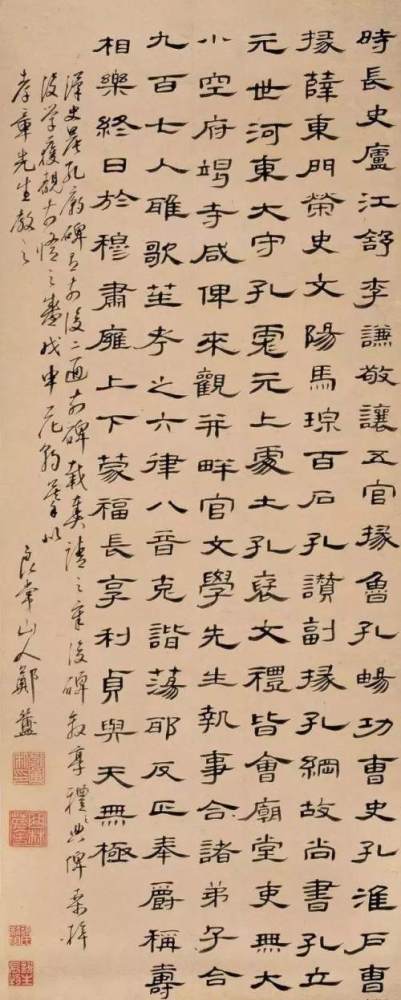 時長史廬江舒李謙敬讓五官掾魯孔暢功曹史孔淮戶曹
掾薛東門榮史文陽馬琮百石孔讚副掾孔綱故尚書孔立
元世河東大守孔彪元上處土孔褒文禮皆會廟堂吏無大
小空府竭寺咸俾來觀并畔官文學先生執事合諸弟子合
九百七人雅歌笙考之六律八音克諧蕩耶反正奉爵稱壽
相樂終日於穆肅雍上下蒙福長享利貞與天無極
漢史晨孔廟碑有前後二通前碑載奏請之章後碑敘享禮之典俾
後学獲觀前之盛戊申花朝以
孝章先生教之
良常山人鄭簠